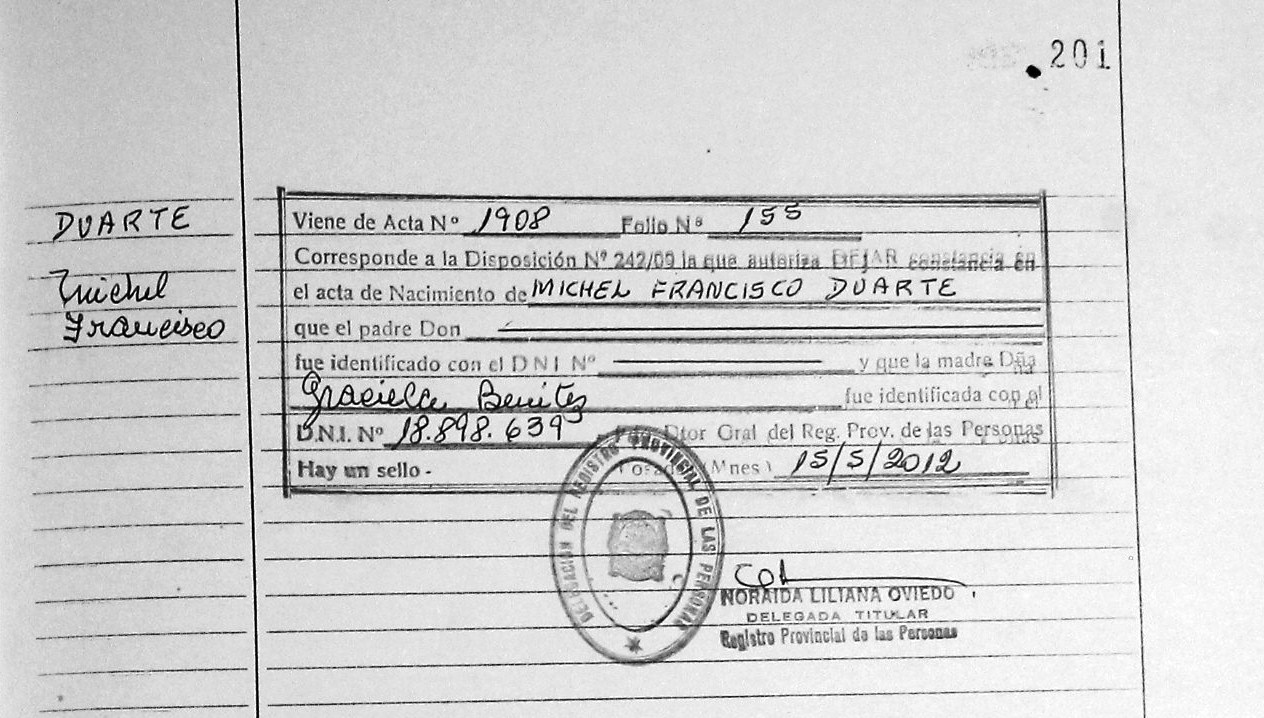 201
DUARTE
Michel
Francisco
Viene de Acta Nº 1908 Folio Nº 155
Corresponde a la Disposición Nº 242/09 la que autoriza DEJAR constancia en
el acta de Nacimiento de MICHEL FRANCISCO DUARTE
que el padre Don
fue identificado con el DNI Nº y que la madre Dña
Graciela Benitez fue identificada con el
D.N.I. Nº 18.898.639 Dtor Gral del Reg. Prov. de las Personas
Hay un sello - Posadas (Mnes) 15/5/2012
DELEGACIÓN DEL REGISTRO PROVINCIAL DE LAS PERSONAS
NORAIDA LILIANA OVIEDO
DELEGADA TITULAR
Registro Provincial de las Personas